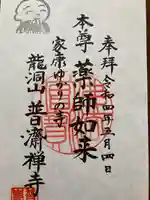 奉拝 令和四年五月四日
本尊 薬師如来
家康ゆかりの寺
龍洞山 普濟禅寺